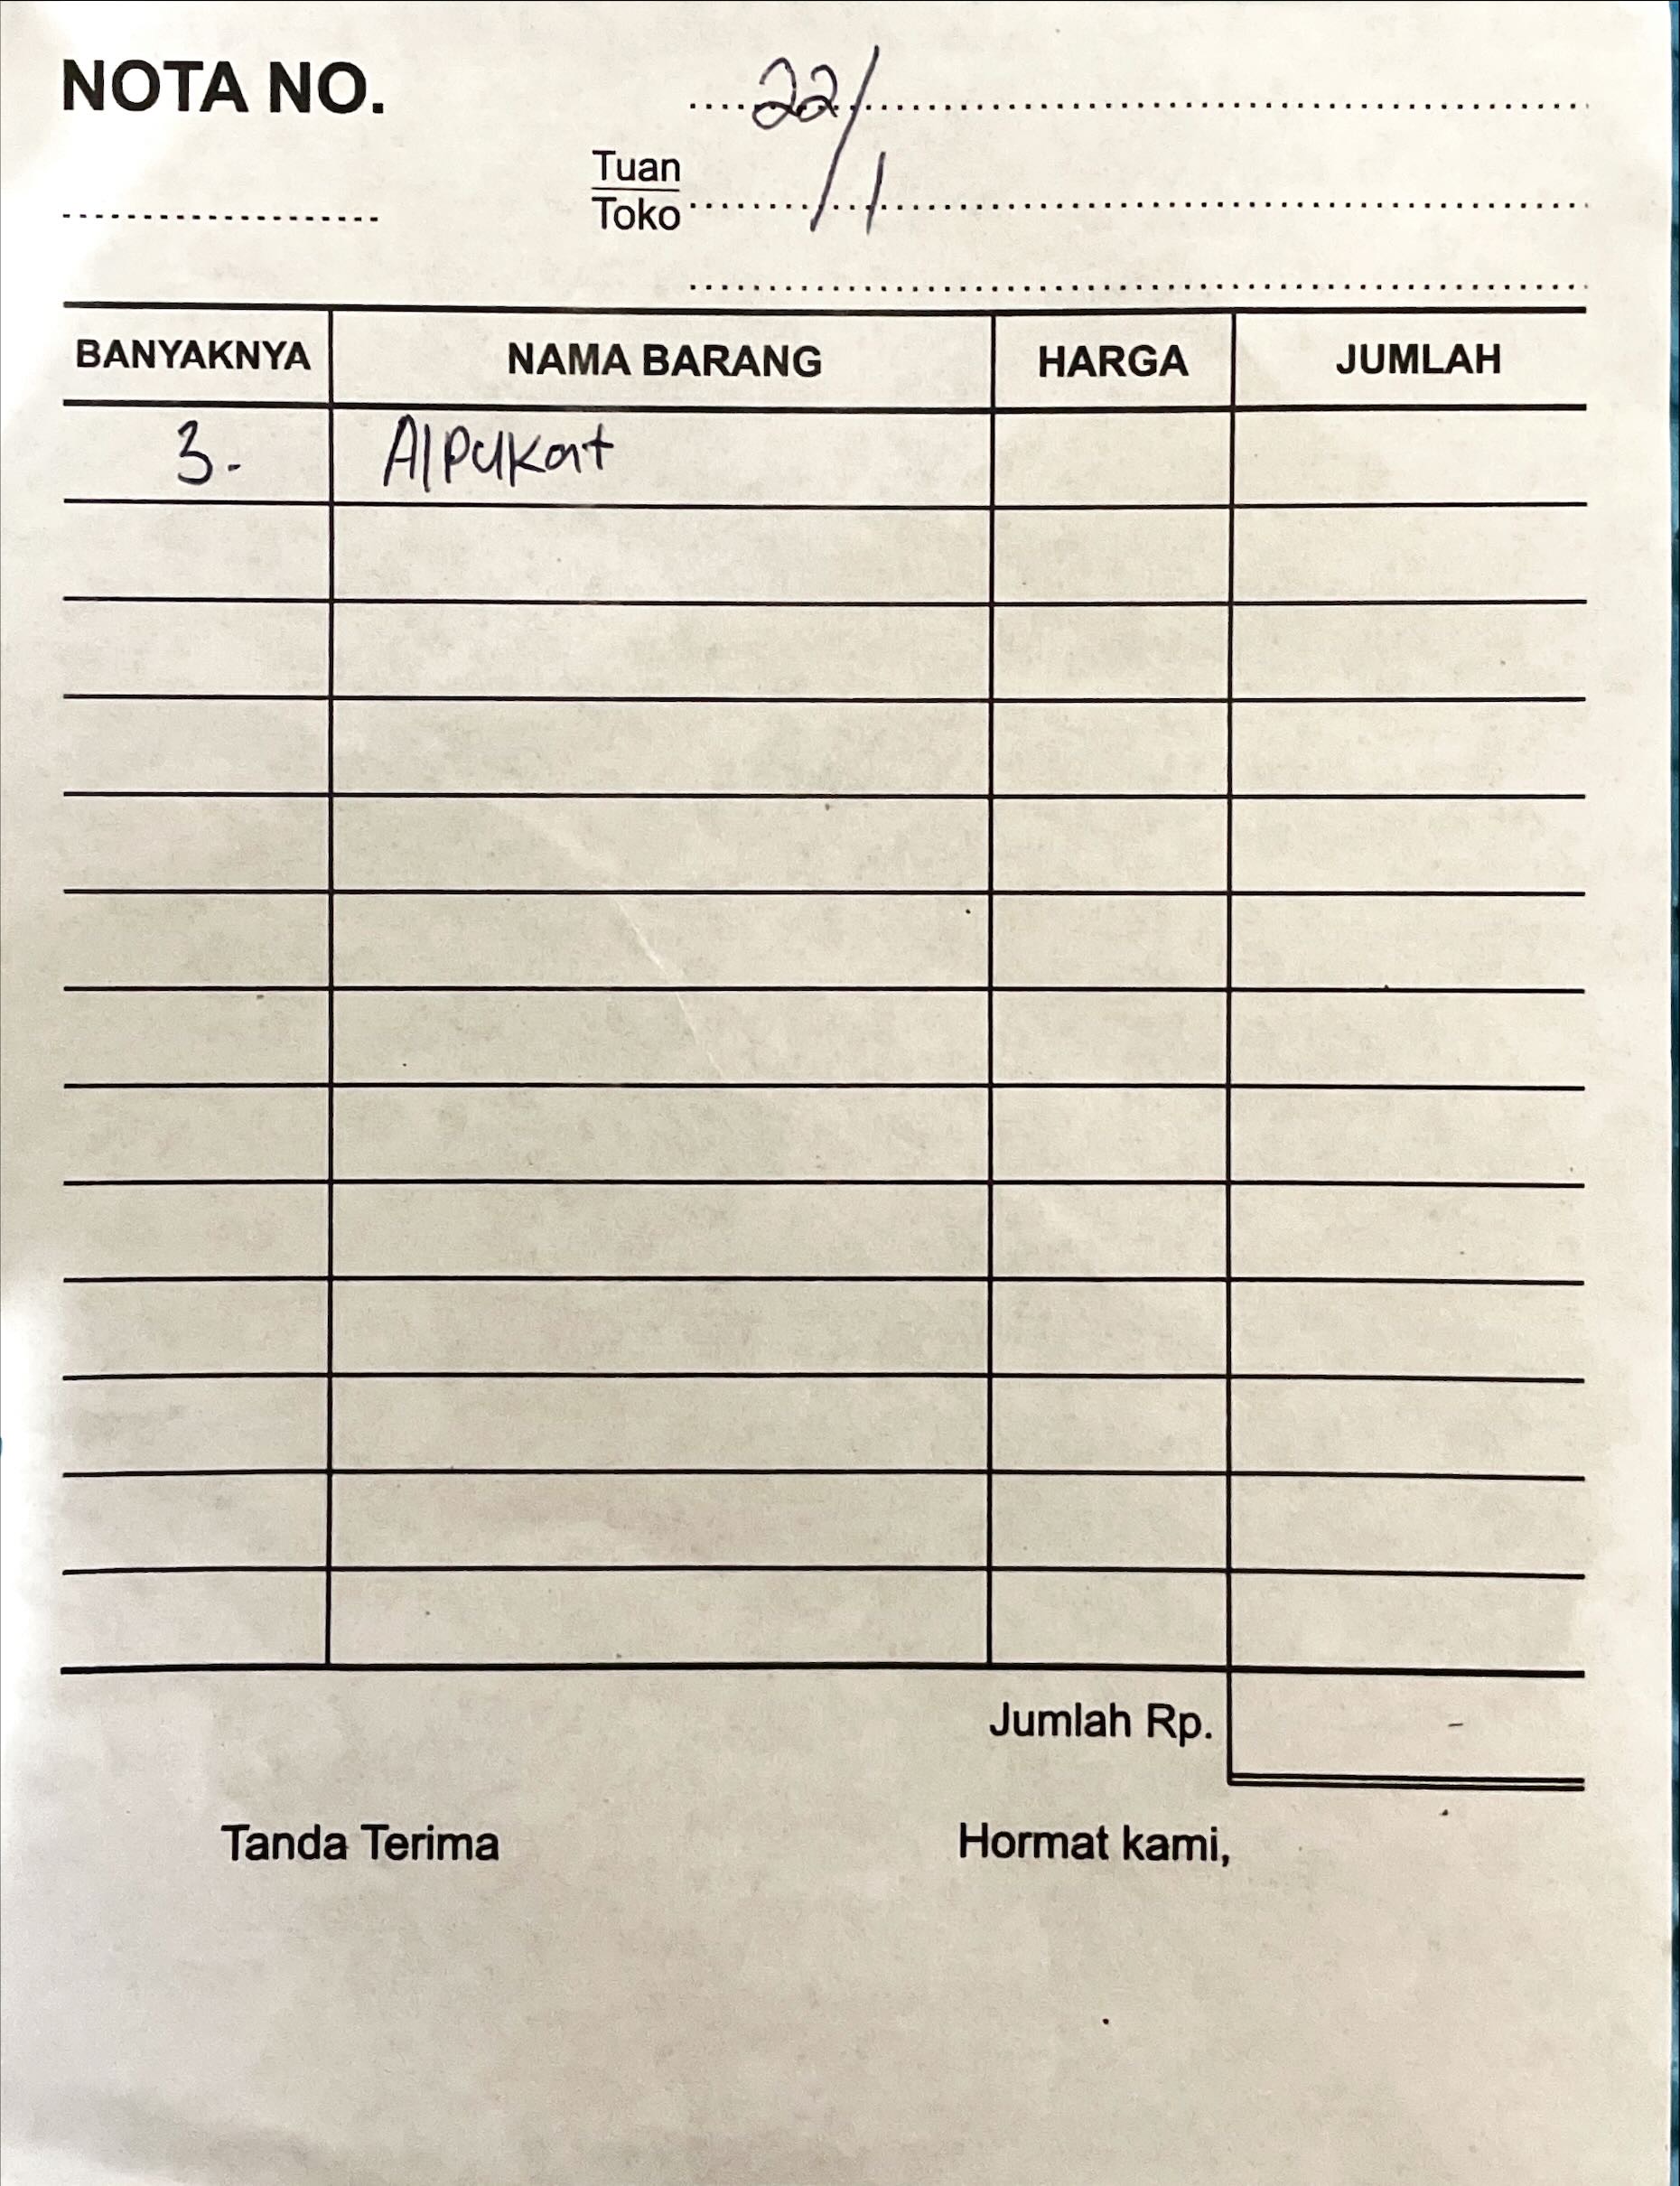 NOTA NO.
22/1
Tuan
Toko
BANYAKNYA NAMA BARANG HARGA JUMLAH
3. Alpukat
Jumlah Rp. -
Tanda Terima Hormat kami,